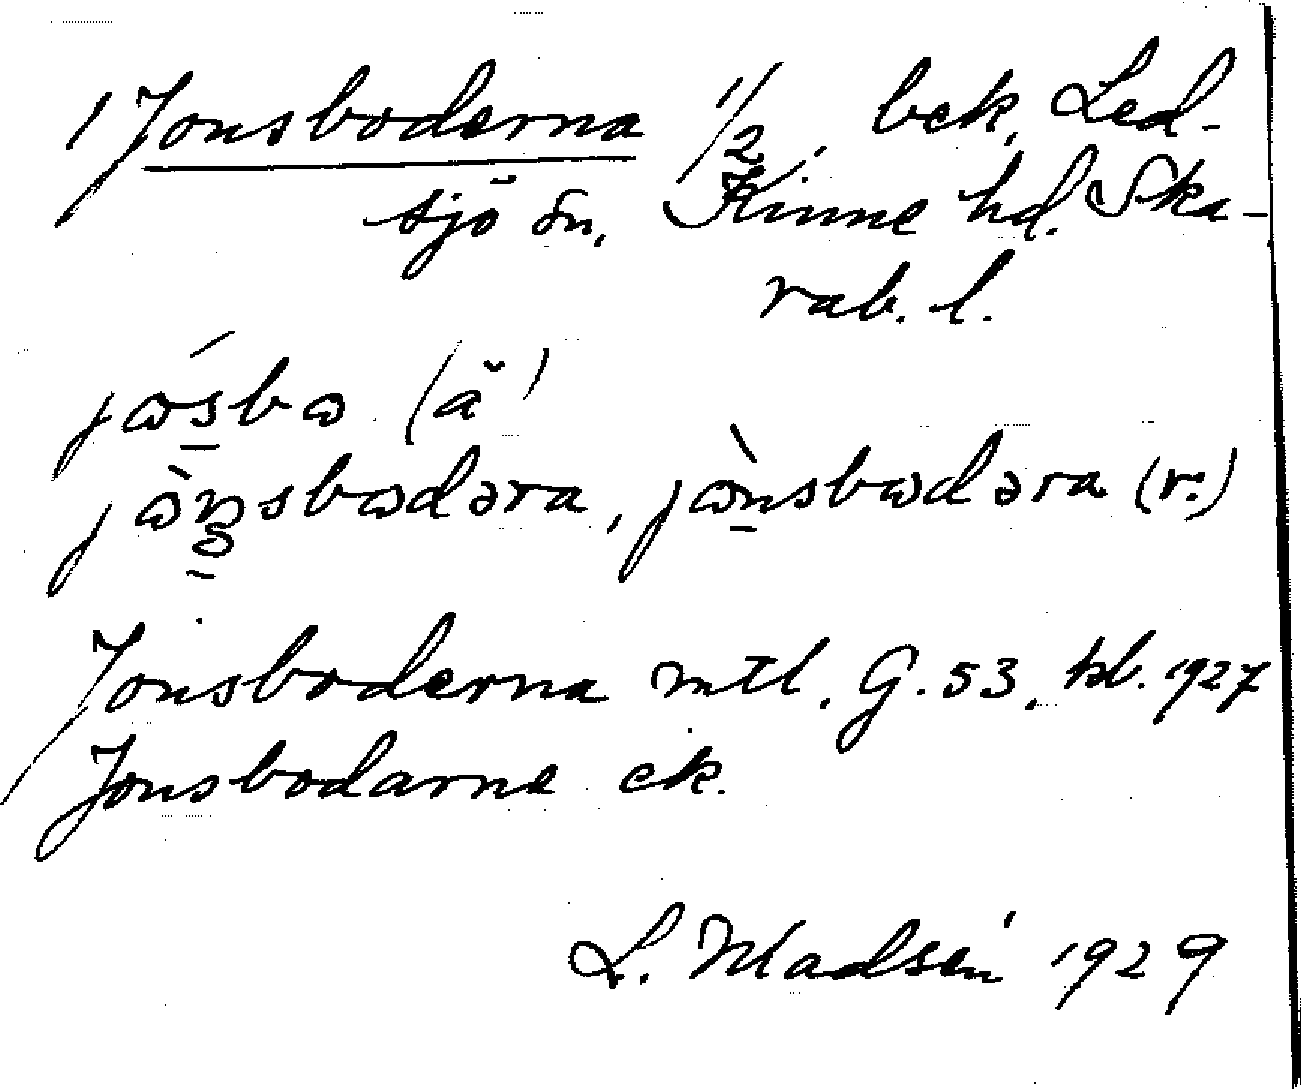 1 Jonsboderna 1/2, bek, Led-
sjö sn, Kinne hd. Ska-
rab. l.
jɷ́sbɷ (ă)
jɷ̀n̥sbɷdəra, jɷ̀nsbɷdəra (r.)
Jonsboderna mtl, G. 53, kb. 1927
Jonsbodarne ek.
L. Madsén 1929